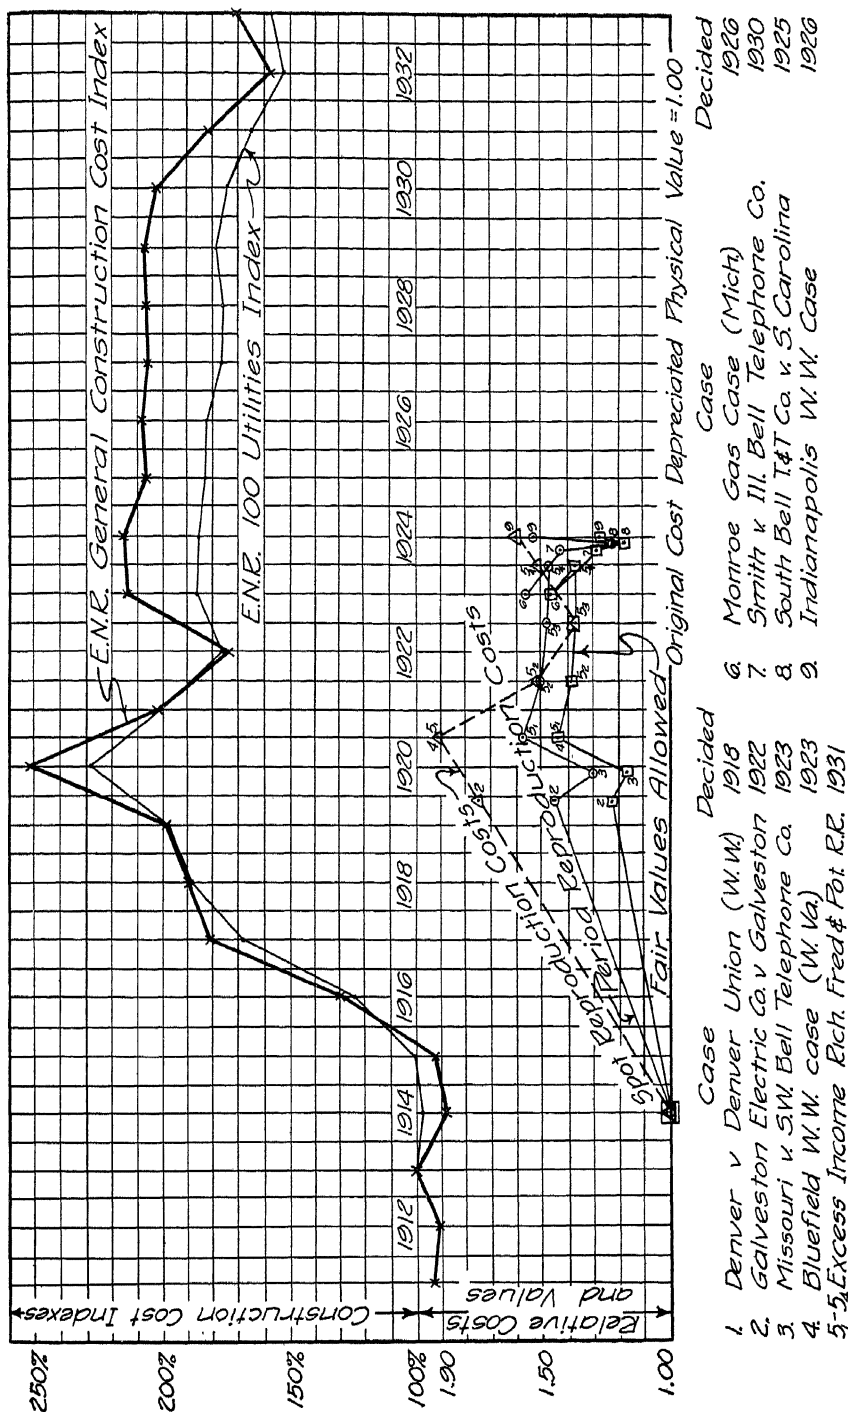 250%
200%
150%
100%
1.90
1.50
1.00
Construction Cost Indexes
Relative Costs
and Values
E.N.R. General Construction Cost Index
E.N.R. 100 Utilities Index
1912
1914
1916
1918
1920
1922
1924
1926
1928
1930
1932
Spot Reproduction Costs
Period Reproduction Costs
Fair Values Allowed
Original Cost Depreciated Physical Value = 1.00
Case Decided
1. Denver v Denver Union (W.W.) 1918
2. Galveston Electric Co. v Galveston 1922
3. Missouri v. S.W. Bell Telephone Co. 1923
4. Bluefield W.W. case (W. Va.) 1923
5,-5₄ Excess Income Rich. Fred & Pot. R.R. 1931
Case Decided
6. Monroe Gas Case (Mich) 1926
7. Smith v. Ill. Bell Telephone Co. 1930
8. South Bell T.&T Co. v. S. Carolina 1925
9. Indianapolis W.W. Case 1926